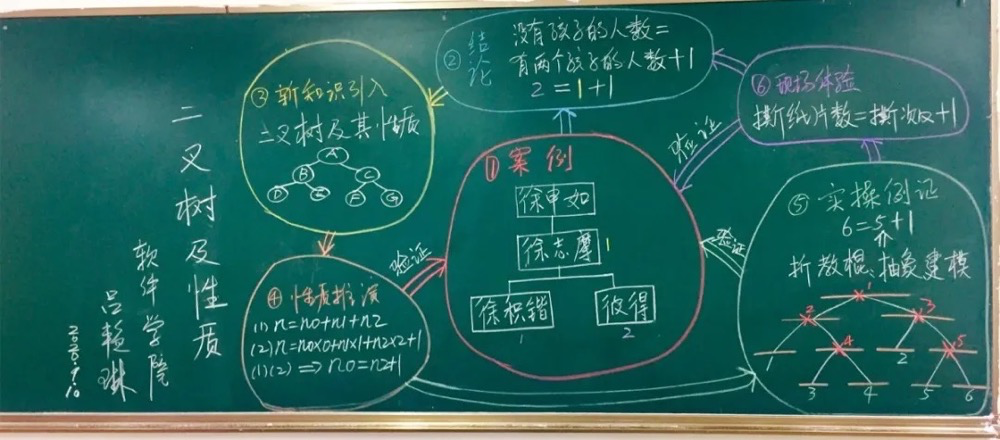 二叉树及性质
软件学院
吕赣琳
2020.9.10
① 案例
徐申如
徐志摩 1
徐积锴
彼得
1
2
② 结论
没有孩子的人数=
有两个孩子的人数+1
2=1+1
③ 新知识引入
二叉树及其性质
A
B C
D E F G
④ 性质推演
(1) n=n0+n1+n2
(2) n=n0×0+n1×1+n2×2+1
(1)(2) ⇒ n0=n2+1
验证
⑤ 实操例证
6=5+1
折教棍、抽象建模
1
2 3
1 4 2 5
3 4 5 6
验证
⑥ 现场体验
撕纸片数=撕次数+1
验证